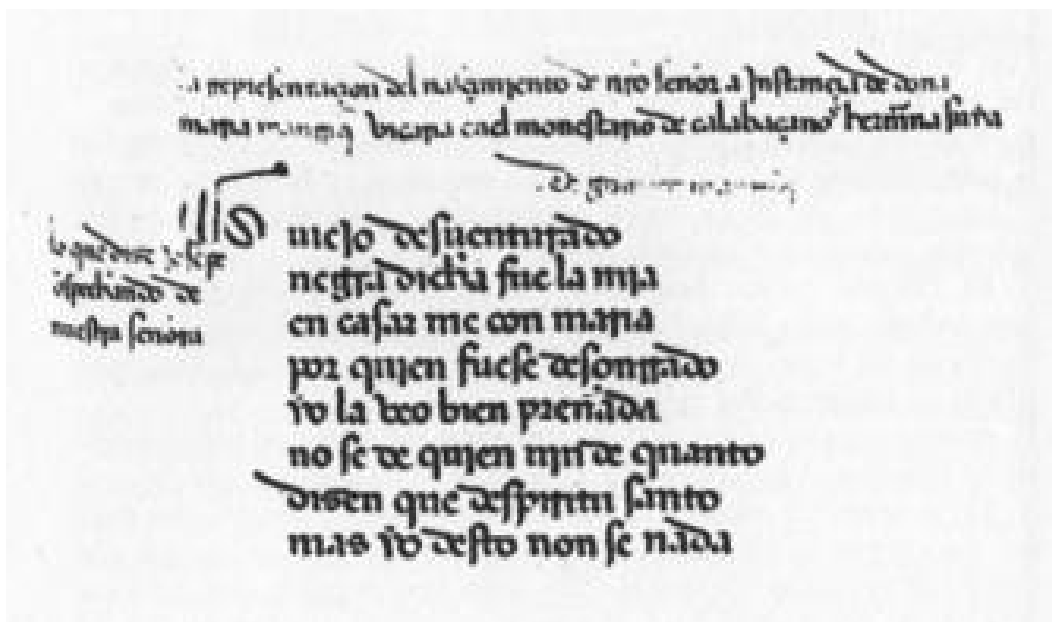 la representaçion del nasçimiento de nro señor a instançia de doña
maria manriq vicaria en el monesterio de calabaçanos hermana suya
lo que dize josepe
sospechando de
nuestra señora
O viejo desuenturado
negra dicha fue la mia
en casar me con maria
por quien fuese desonrrado
yo la veo bien preñada
no se de quien nin de quanto
dizen que despiritu santo
mas yo desto non se nada